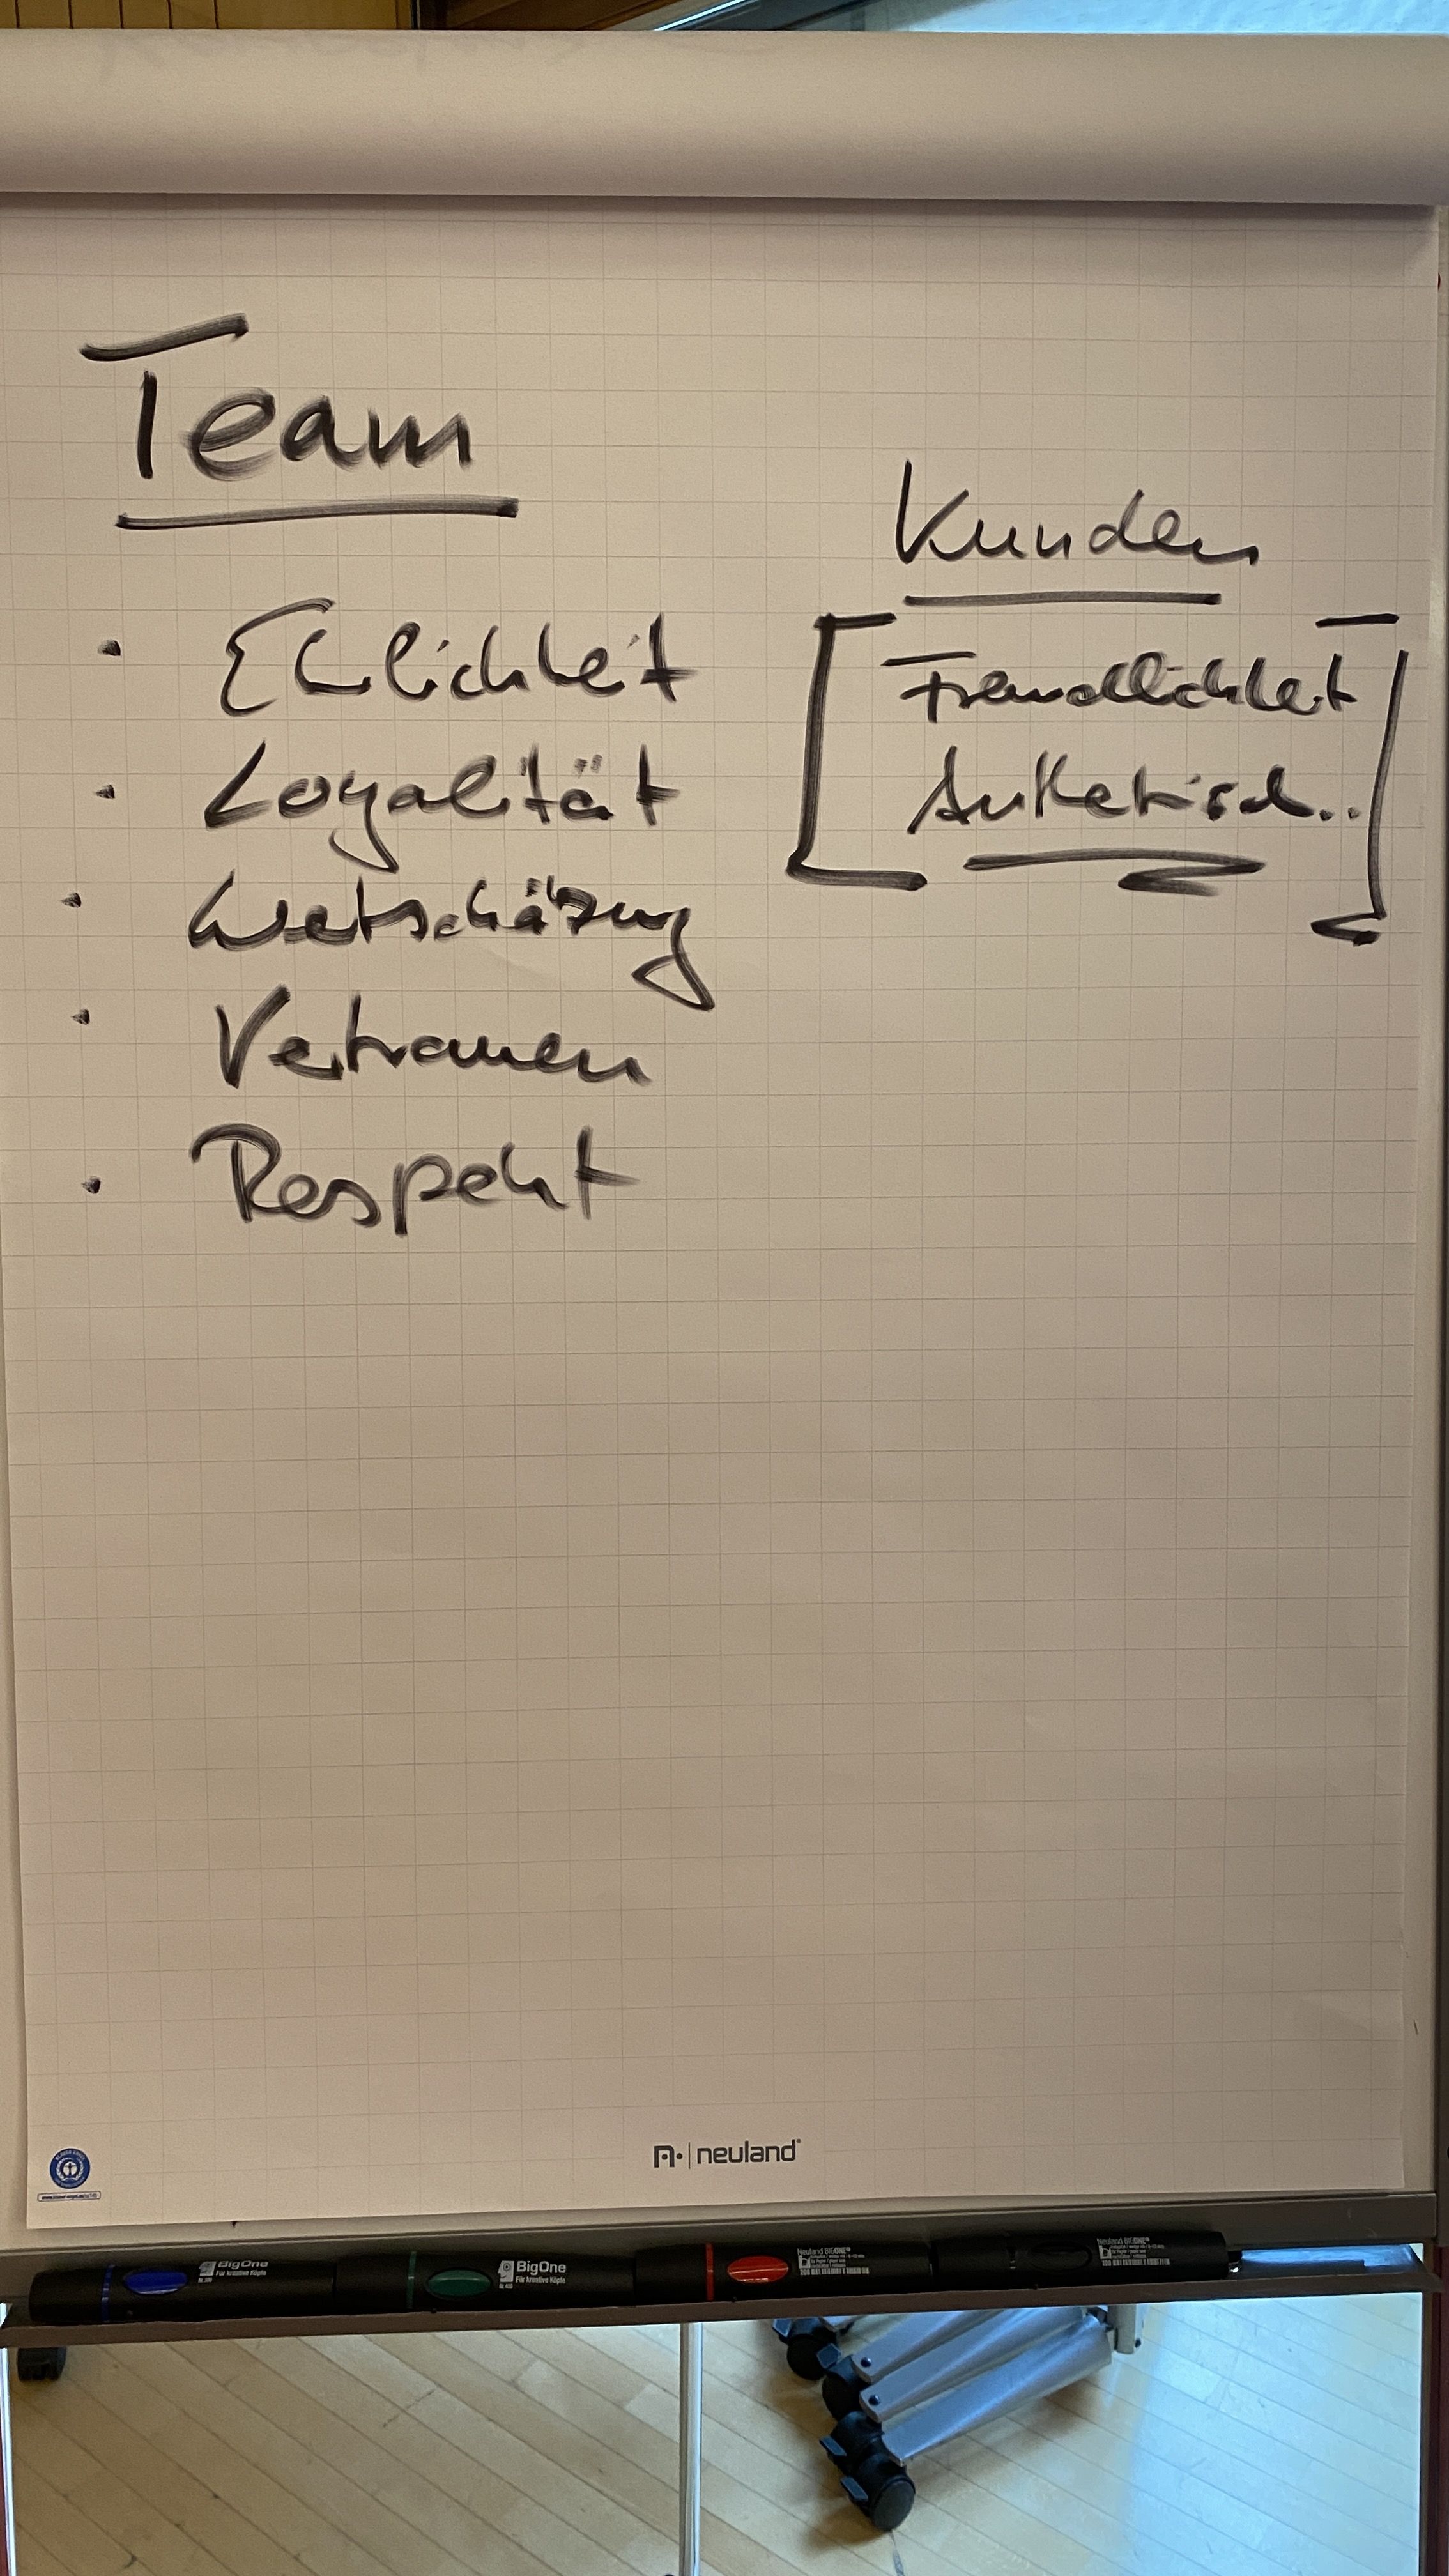 Team
Ehrlichkeit
Loyalität
Wertschätzung
Vertrauen
Respekt
Kunden
Freundlichkeit
Authetisch..
neuland
BigOne
Für kreative Köpfe
BigOne
Für kreative Köpfe
Neuland BIGONE®
Neuland BIGONE®